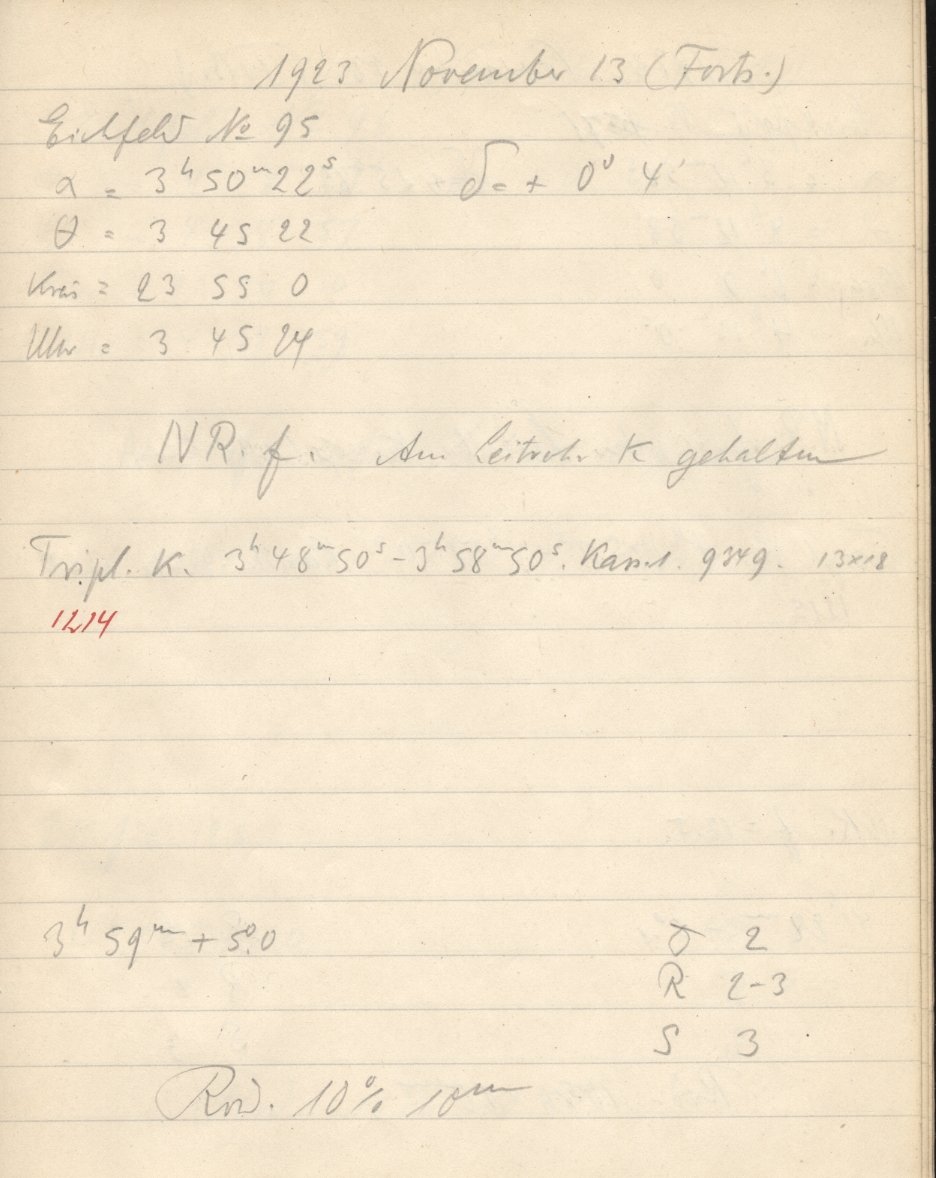 1923 November 13 (Forts.)
Eichfeld No 95
α = 3ʰ 50ᵐ 22ˢ δ = + 0° 4'
θ = 3 45 22
Kreis = 23 55 0
Uhr = 3 45 24
NR. f. Am Leitrohr K gehalten
Tripl. K. 3ʰ 48ᵐ 50ˢ - 3ʰ 58ᵐ 50ˢ. Kass. 1. 9349. 13x18
1214
3ʰ 59ᵐ + 5°.0
2
R 2-3
S 3
10% 10ᵐ